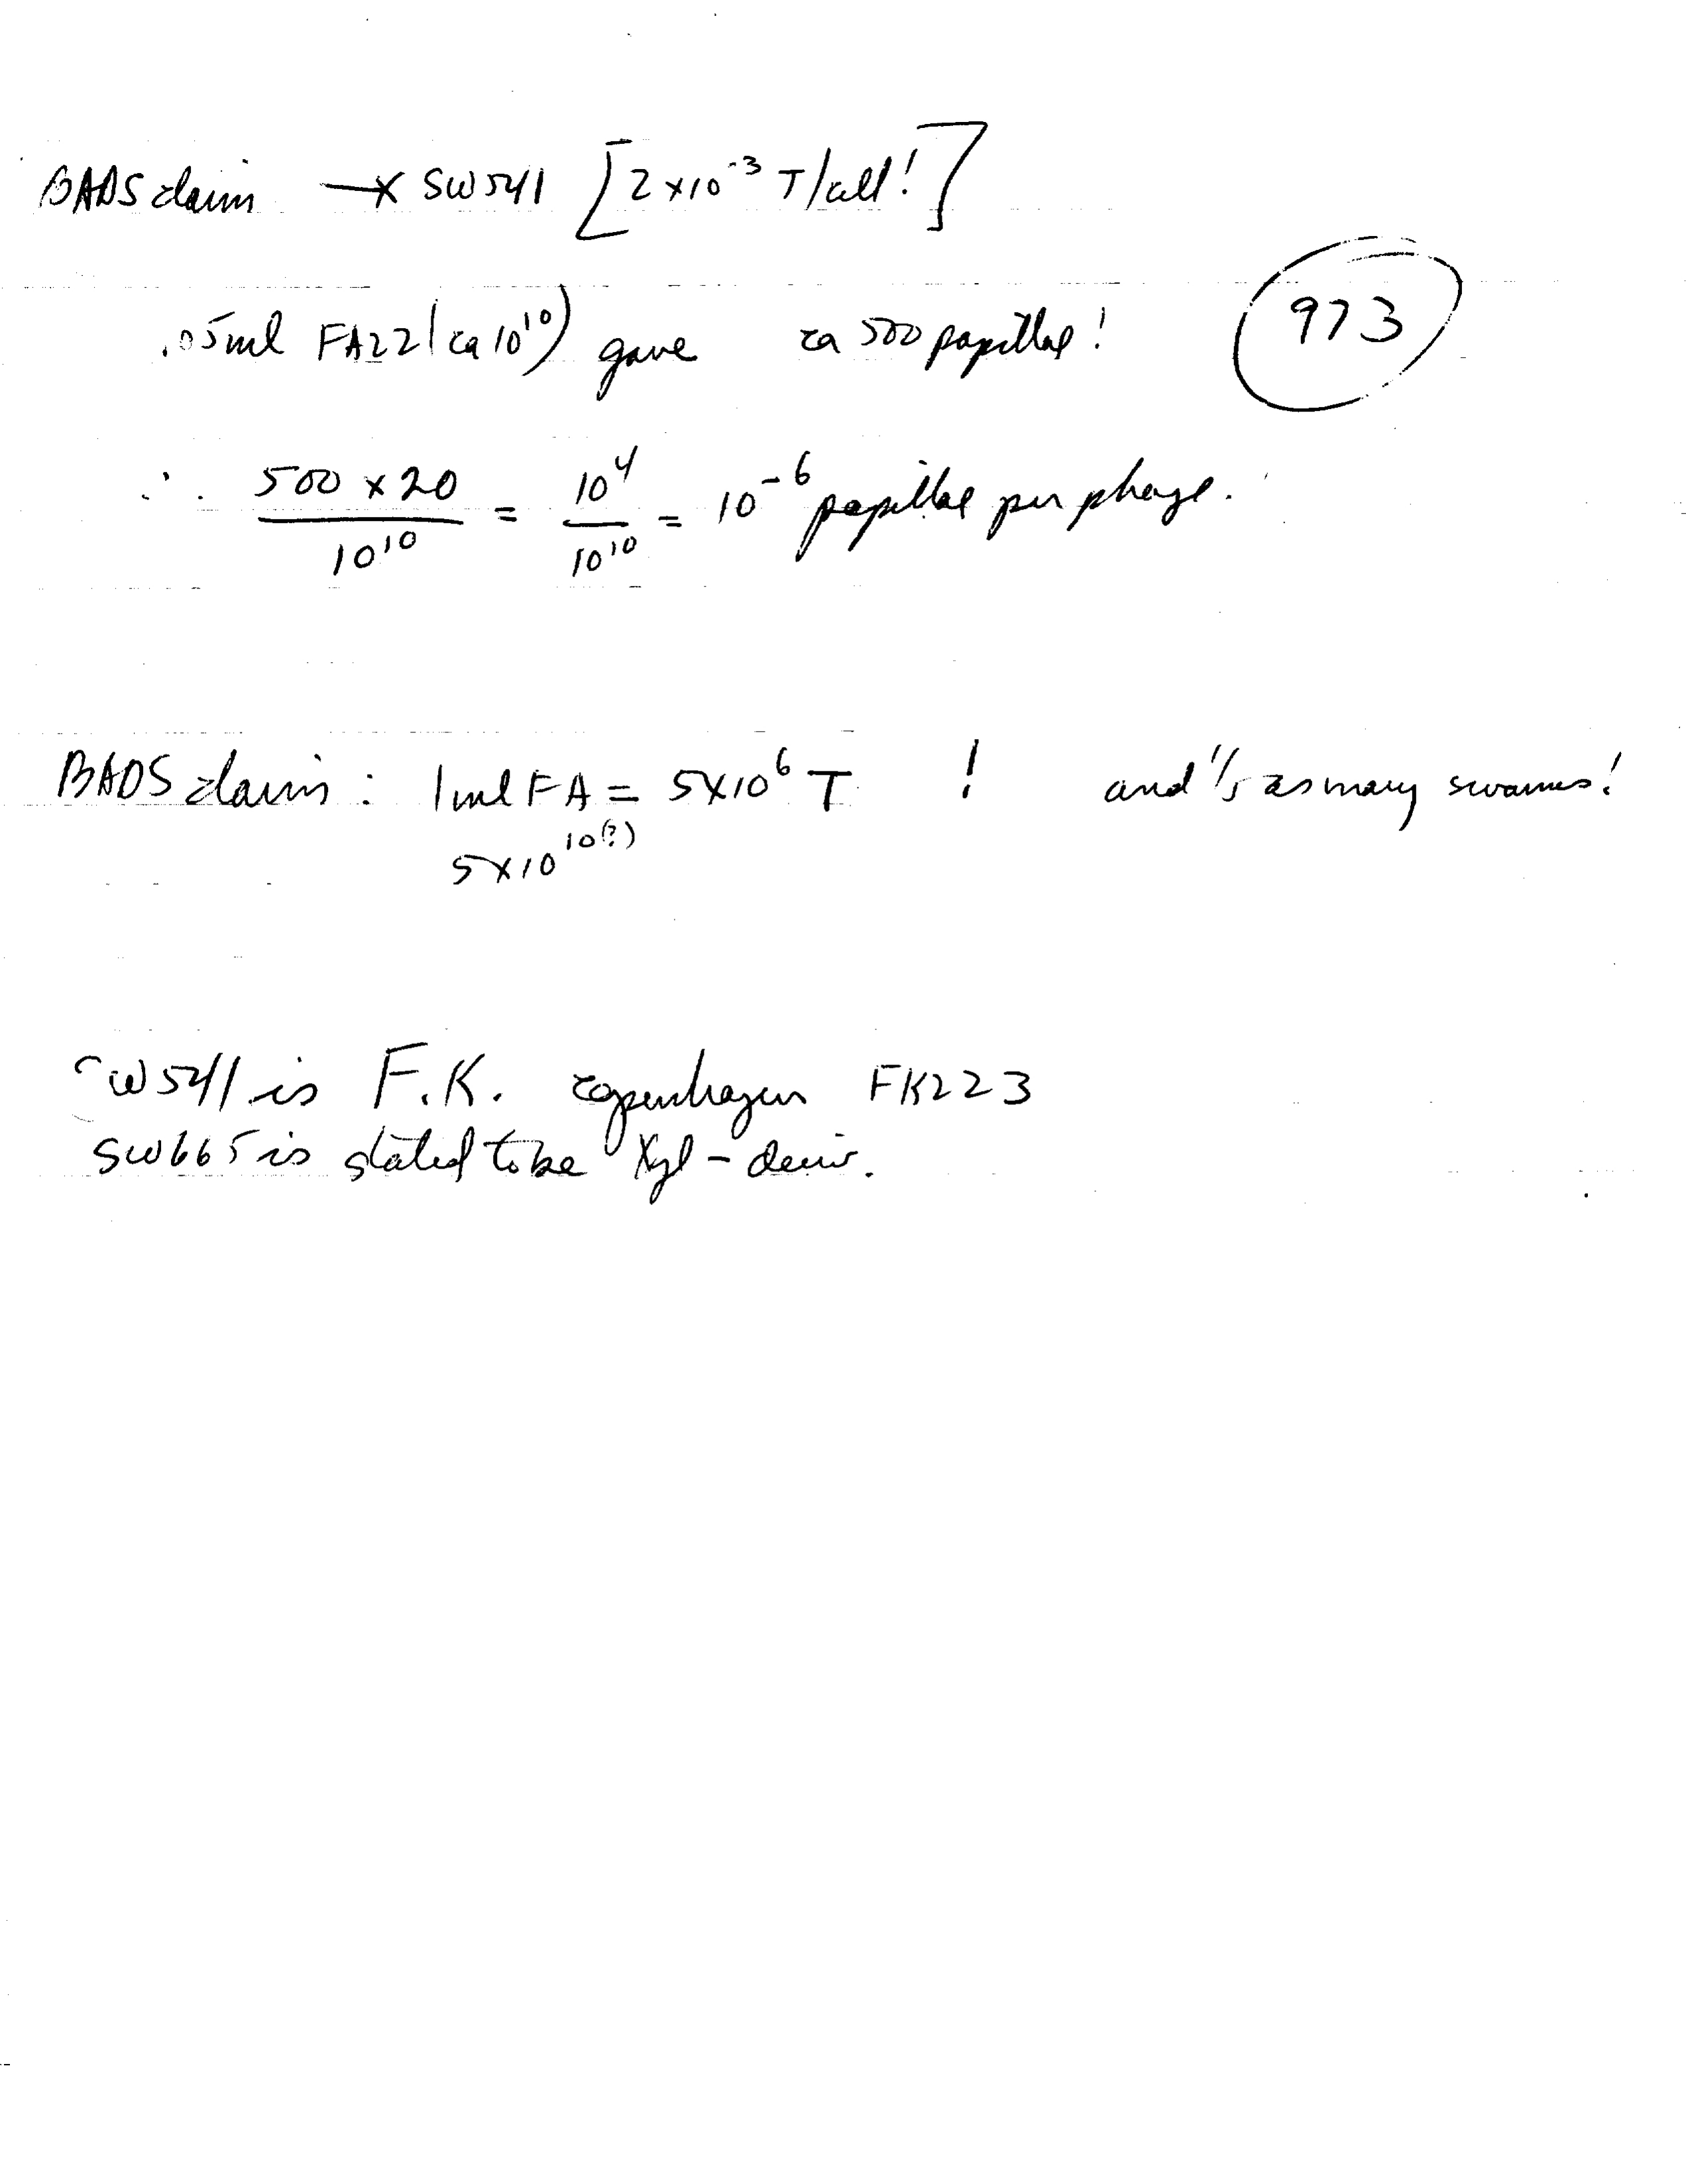 BADS claim —x SW541 [2 x 10⁻³ T/cell!]
973
.05ml FA22 (ca 10¹⁰) gave ca 500 papillae!
∴ 500 x 20 / 10¹⁰ = 10⁴ / 10¹⁰ = 10⁻⁶ papillae per phage.
BADS claims: 1ml FA = 5x10⁶ T ! and 1/5 as many swarms!
5x10¹⁰⁽?⁾
SW541 is F.K. copenhagen FK223
SW665 is stated to be Xyl- deriv.